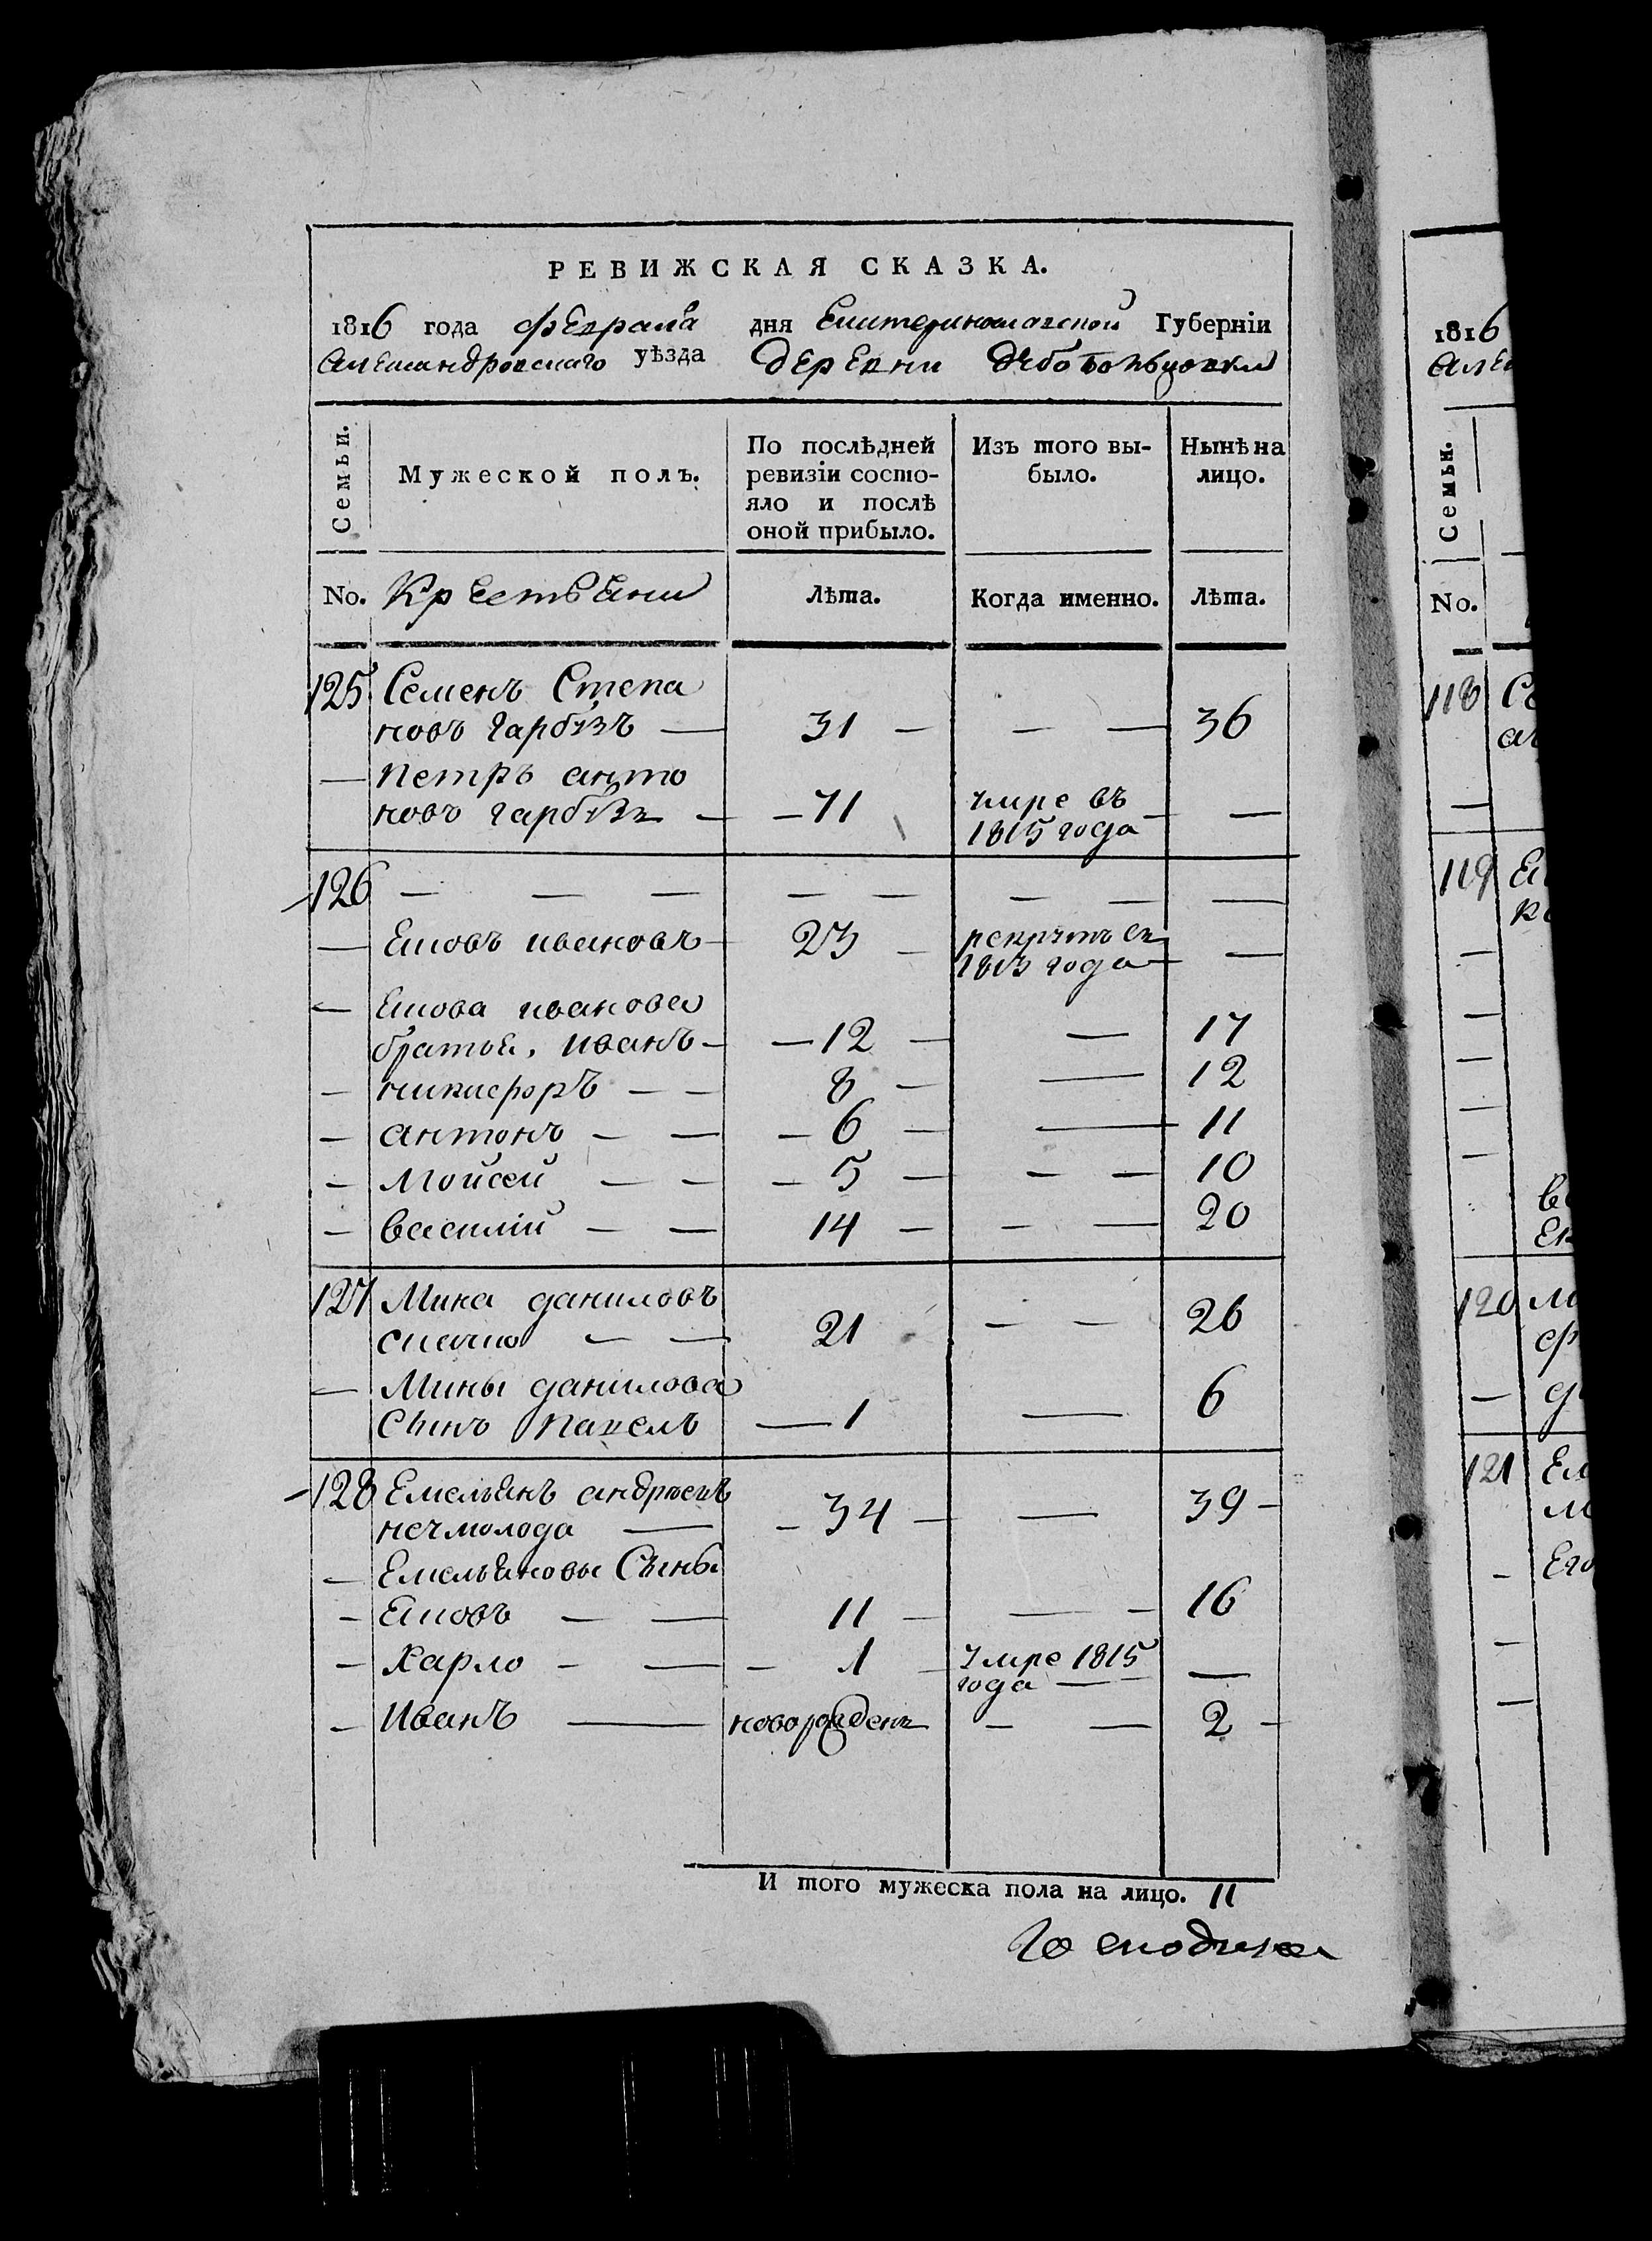 РЕВИЖСКАЯ СКАЗКА.
1816 года февраля дня Екатеринославской Губерніи
Александровскаго уѣзда деревни
Семьи. Мужеской полъ. По послѣдней ревизіи состо-яло и послѣ оной прибыло. Изъ того вы-было. Нынѣ на лицо.
No. Крестьяни Лѣта. Когда именно. Лѣта.
125 Семенъ Степа
новъ гарбузъ — 31 — — — 36
— Петръ анто
новъ гарбузъ — — 71 умре въ — —
1815 года
126 — — — — — — — —
— Яковъ ивановъ — 23 — рекрутъ въ —
1813 года —
— Якова иванова
братья, иванъ — — 12 — — 17
— никифоръ — — 8 — — 12
— антонъ — — — 6 — — 11
— Мойсей — — — 5 — — — 10
— василій — — 14 — — — 20
127 Мина даниловъ
— — 21 — — 26
— Мины данилова
Сынъ Павелъ — 1 — 6
128 Емельянъ андреевъ
нечмолода — — 34 — — 39 —
— Емельяновы Сыны
— Яковъ — — 11 — — — 16
— Харло — — — 1 — умре 1815 —
года —
— Иванъ — новорожденъ — — 2 —
И того мужеска пола на лицо. 11
1816
No.
Семьи.
118
119
120
121